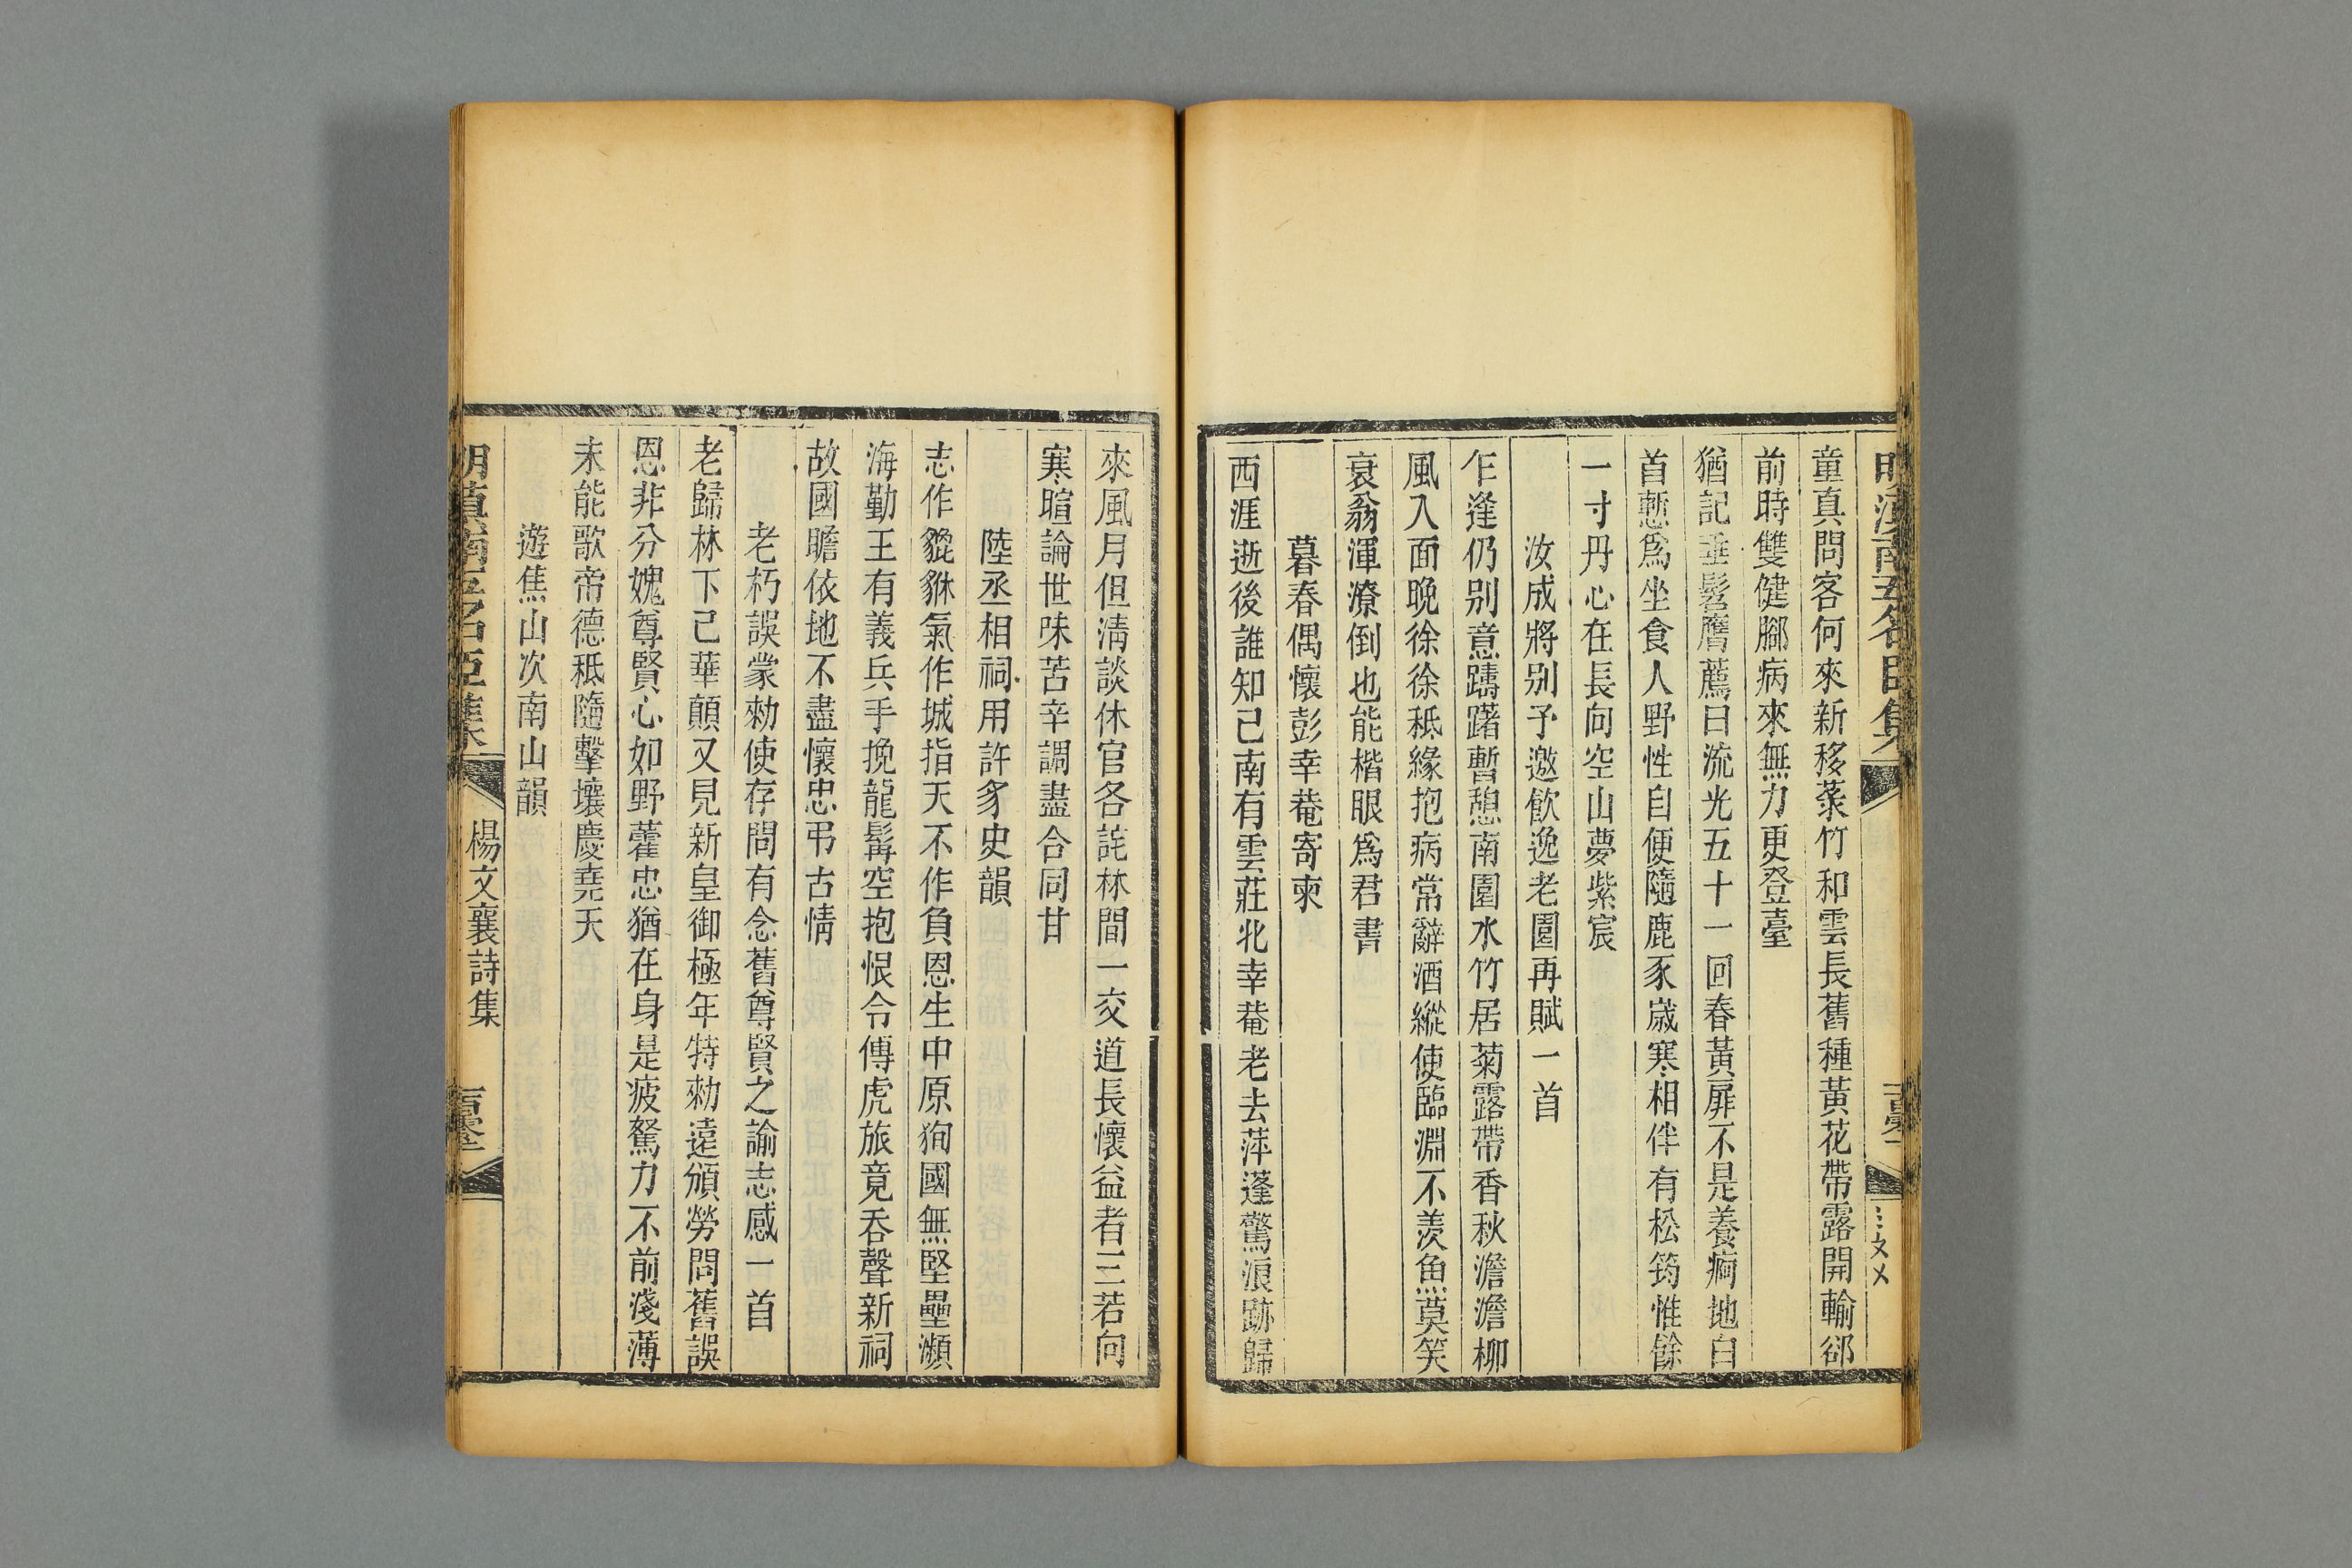 童真問客何來新移菉竹和雲長舊種黃花帶露開輸郤
前時雙健腳病來無力更登臺
猶記垂髫膺薦日流光五十一回春黃扉不是養痾地白
首慙爲坐食人野性自便隨鹿豕歲寒相伴有松筠惟餘
一寸丹心在長向空山夢紫宸
汝成將别予邀飲逸老園再賦一首
乍逢仍别意躊躇暫憩南園水竹居菊露帶香秋澹澹柳
風入面晚徐徐秪緣抱病常辭酒縱使臨淵不羨魚莫笑
衰翁渾潦倒也能楷眼爲君書
暮春偶懷彭幸菴寄柬
西涯逝後誰知己南有雲莊北幸菴老去萍蓬驚浪跡歸
來風月但清談休官各詫林間一交道長懷益者三若向
寒暄論世味苦辛調盡合同甘
陸丞相祠用許豸史韻
志作貔貅氣作城指天不作負恩生中原狥國無堅壘瀕
海勤王有義兵手挽龍髯空抱恨令傳虎旅竟吞聲新祠
故國瞻依地不盡懷忠弔古情
老朽誤蒙勑使存問有念舊尊賢之諭志感一首
老歸林下已華顛又見新皇御極年特勑遠頒勞問舊誤
恩非分媿尊賢心如野藿忠猶在身是疲駑力不前淺薄
未能歌帝德秪隨擊壤慶堯天
遊焦山次南山韻
楊文襄詩集